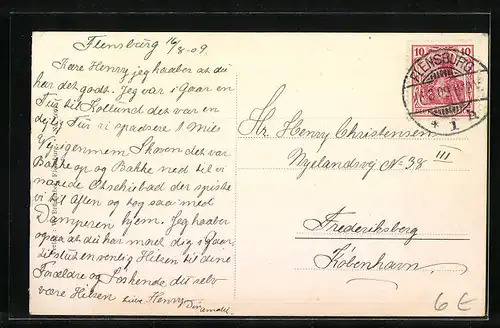 Flensburg 16/8-09.
Kære Henry jeg haaber at du
har det godt. Jeg var i Gaar en
Tur til Kollund det var en
dejlig Tur vi spaserre 1 Mils
Vej igennem Skoven det var
Bakke op og Bakke ned til vi
naaede der spiste
vi til Aften og tog saa med
Damperen hjem. Jeg haaber
ogsaa at du har moret dig i Gaar,
det slut en venlig Hilsen til dine
Forældre og Søskende dit selv
være Hilsen
Henry
FLENSBURG
* 1
10 10
Hr. Henry Christensen
Nyelandsvej No 38 III
Frederiksberg
København.
6 €